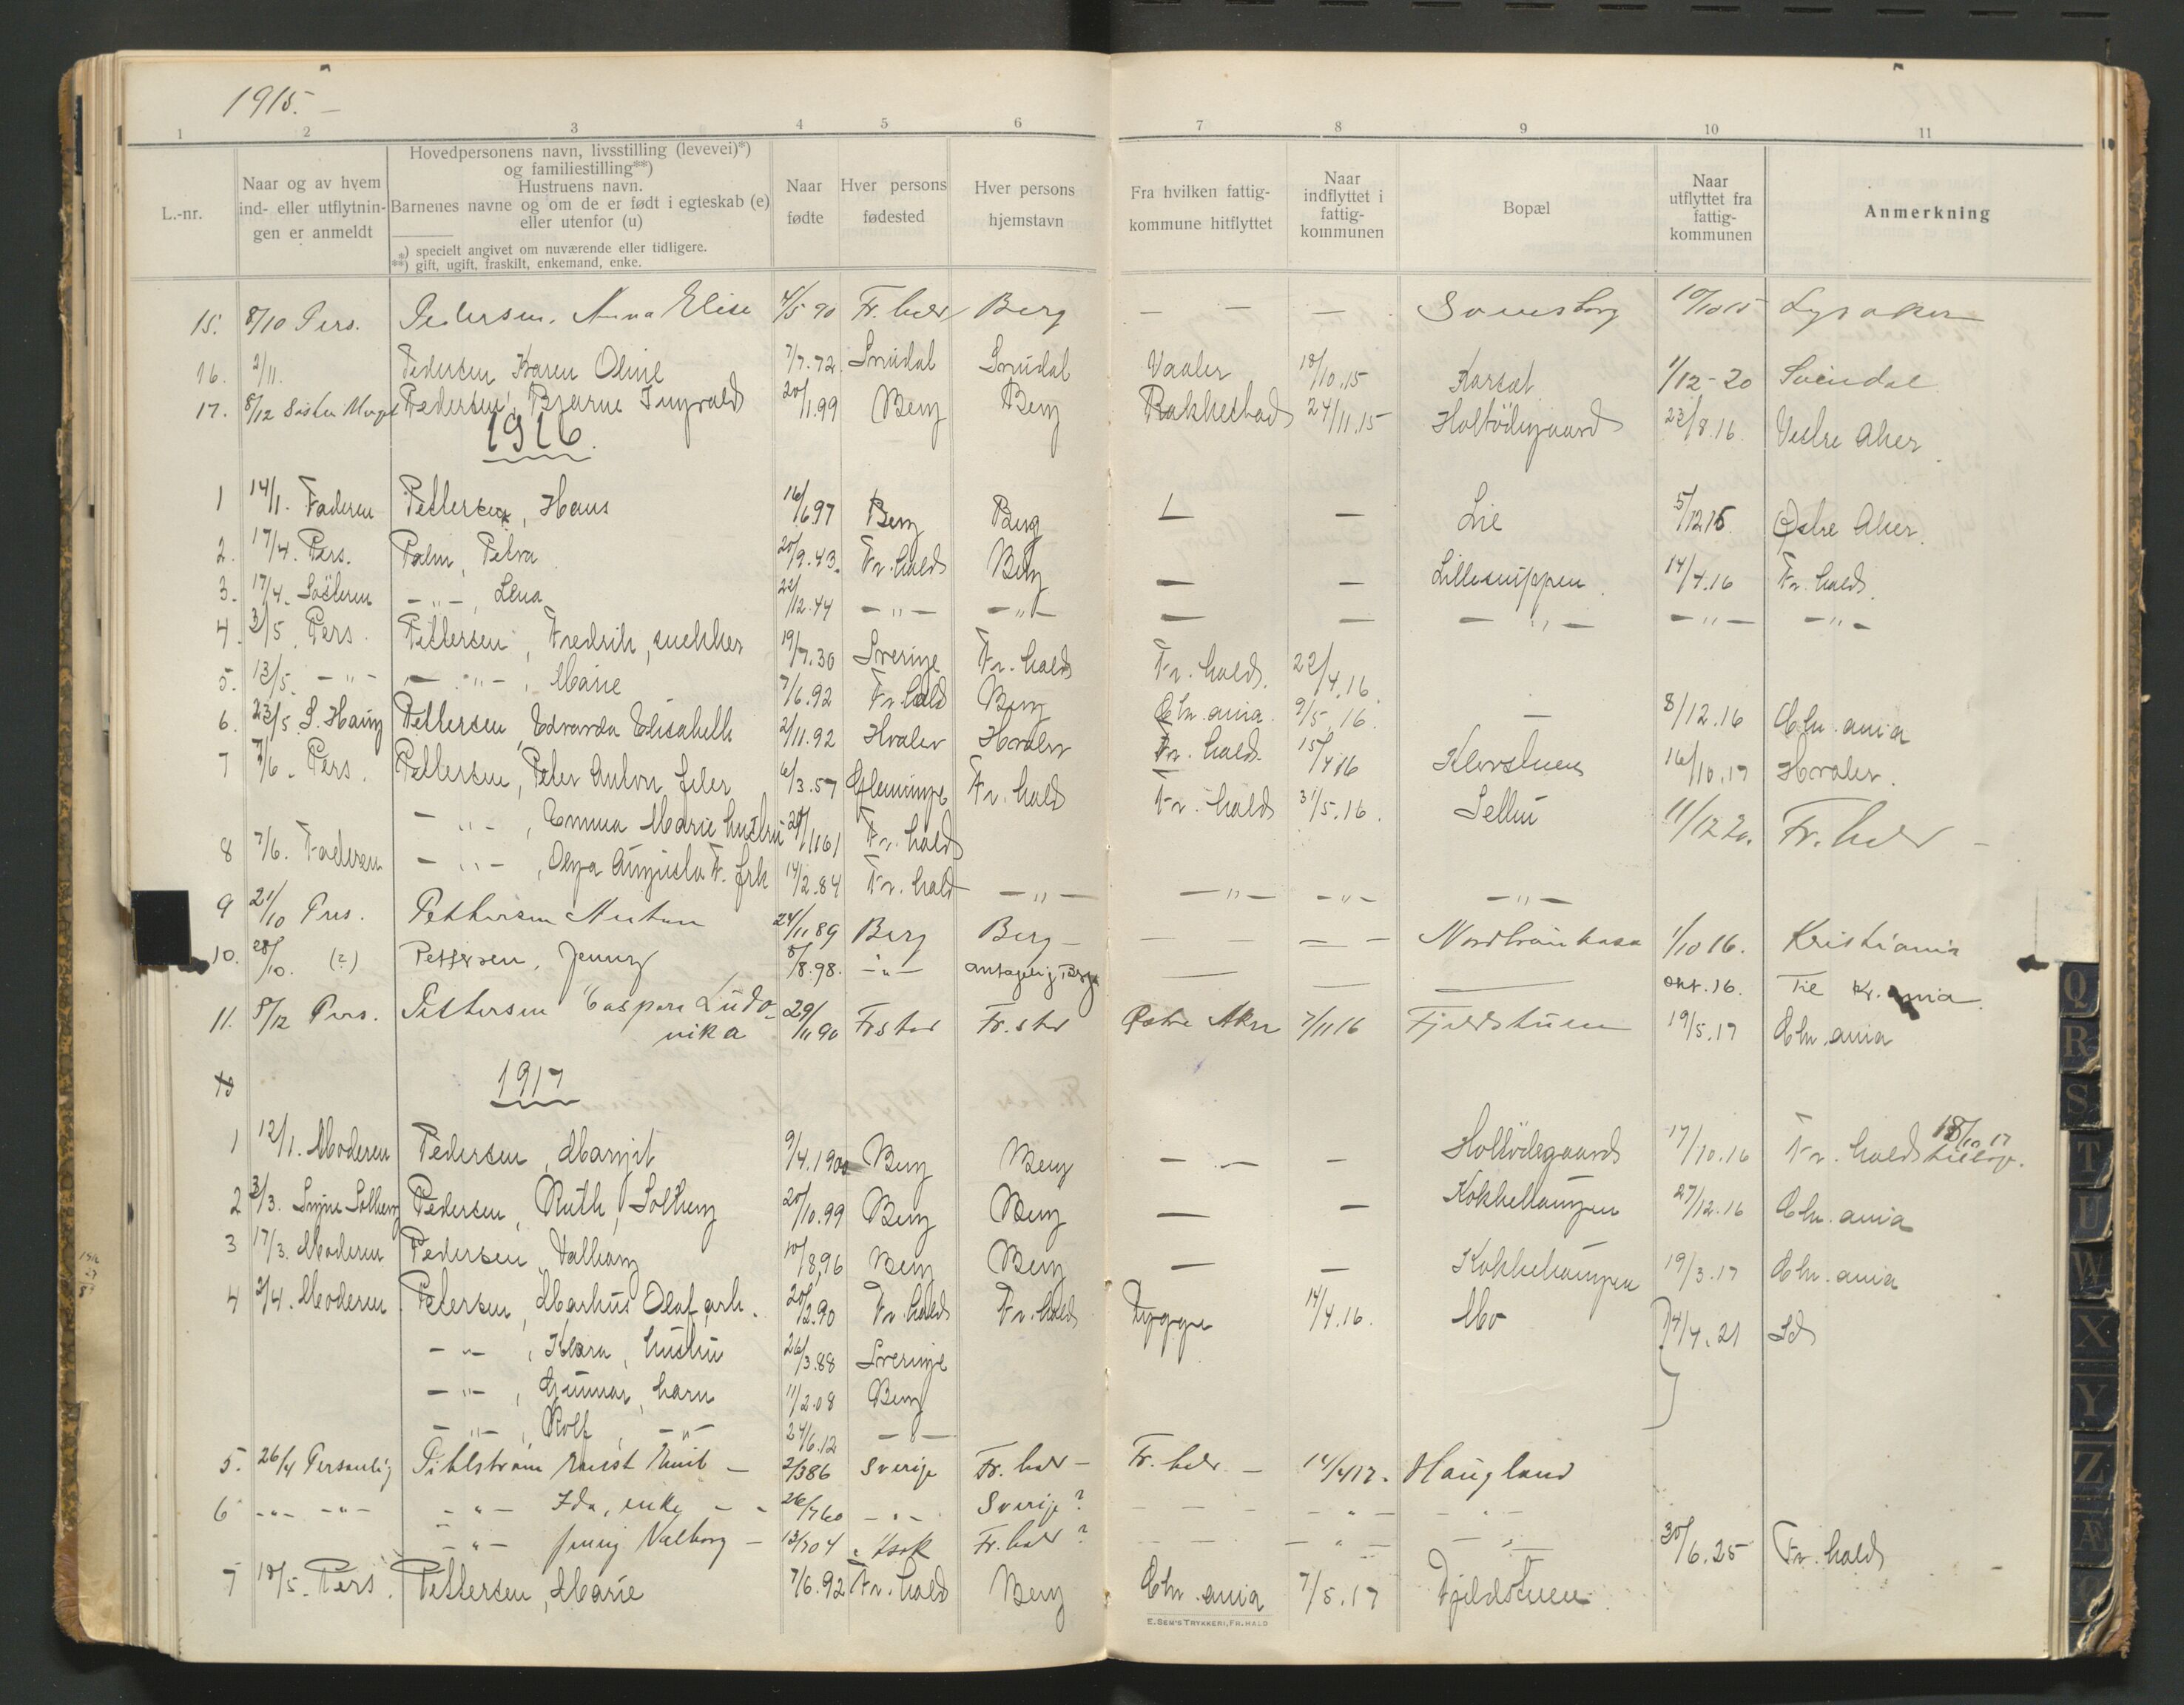 1915. –
1 2 3 4 5 6 7 8 9 10 11
L.-nr.
Naar og av hvem ind- eller utflytnin- gen er anmeldt
Hovedpersonens navn, livsstilling (levevei)*)
og familiestilling**)
Hustruens navn.
Barnenes navne og om de er født i egteskab (e)
eller utenfor (u)
*) specielt angivet om nuværende eller tidligere.
**) gift, ugift, fraskilt, enkemand, enke.
Naar fødte
Hver persons fødested
Hver persons hjemstavn
Fra hvilken fattig- kommune hitflyttet
Naar indflyttet i fattig- kommunen
Bopæl
Naar utflyttet fra fattig- kommunen
Anmerkning
15. 8/10 Pers. Pedersen, Anna Elise 4/5 90 Fr.hald Berg – – – 10/10 15 Lysaker
16. 2/11. Pedersen Karen Oline 7/7.72 Svindal Svindal Vaaler 18/10.15 Karset 1/12-20 Svindal
17. 8/12 Pedersen, Bjarne Ingvald 20/1.99 Berg Berg Rakkestad 24/11.15 Holtødegaard 23/8.16. Vestre Aker
1916.
1 14/1. Faderen Pettersen, Hans 16/6.97 Berg Berg – – Lie 5/12 15 Østre Aker.
2. 17/4. Pers. Palm, Petra 20/9.43. Fr.hald Berg – – Lillesnippen 14/4.16 Fr.hald.
3. 17/4. Søsteren –„–, Lena 22/12.44 –„– –„– – – –„– –„– –„–
4. 3/5. Pers. Pettersen, Fredrik, snekker 19/7.30 Sverige Fr.hald Fr.hald. 22/4.16
5. 13/5. –„– –„–, Marie 7/6.92 Fr.hald Berg Chr.ania 9/5.16. – 8/12.16 Chr.ania
6. 23/5. Pettersen, Edvarda Elisabeth 2/11.92 Hvaler Hvaler Fr.hald. 15/4 16 16/10.17 Hvaler.
7 7/6. Pers. Pettersen, Peter Anton 6/3.57 Glemminge Fr.hald Fr.hald 31/5.16. 11/12 20. Fr.hald –
–„–, Emma Marie hustru 1161 Fr.hald
8 7/6. Faderen –„–, Olga Augusta F. frk 14/2.84 Fr.hald –„– –„– –„– –„–
9 21/10 Pers. Petthersen Anton 24/11 89 Berg Berg – – – 1/10 16. Kristiania
10. 28/10. (?) Pettersen, Jenny 8/8.98. –„– antagelig Berg – – – okt.16. Til Kr.ania
11. 8/12 Pers. Petthersen Caspara Ludo-
vika 29/11 90 Fr.stad Fr.stad Østre Aker 7/11 16 Fjeldstuen 19/5.17 Chr.ania
1917
1 12/1. Moderen Pedersen, Margit 9/4.1900 Berg Berg – – – Holtødegaard 17/10.16 Fr.hald 18/10 17 tilbage.
2 3/3. Signe Solberg Pedersen, Ruth, Solberg 20/10.99 Berg Berg – – Kokkehaugen 27/12.16 Chr.ania
3 17/3. Moderen Pedersen, Valborg 10/8.96 Berg Berg – – Kokkehaugen 19/3.17 Chr.ania
4 2/4. Moderen Petersen, Markus Olaf, arb. 20/2.90 Fr.hald Fr.hald Rygge 14/4.16. Mo 4/4.21 Id
–„–, Klara, hustru 26/3.88 Sverige
–„–, Gunnar, barn 11/2.08 Berg
–„–, Rolf, –„– 24/6.12 –„–
5. 26/4 Personlig Pihlstrøm Ernst Emil – 2/3 86 Sverige Fr.hald – Fr.hald – 14/4 17. Haugland
6 –„– –„– –„– Ida, enke – 26/7 60 –„– Sverige? – – – –„– –„–
–„– Jenny Valborg – 13/7 04 Fr.hald? – – –„– –„– 30/6.25 Fr.hald
7 10/5. Pers. Pettersen, Marie 7/6.92 Fr.hald Berg Chr.ania 7/5.17 Fjeldstuen
E. SEM'S TRYKKERI, FR.HALD
Q
R
S
T
U
W
X
Y
Z
Æ
Ø